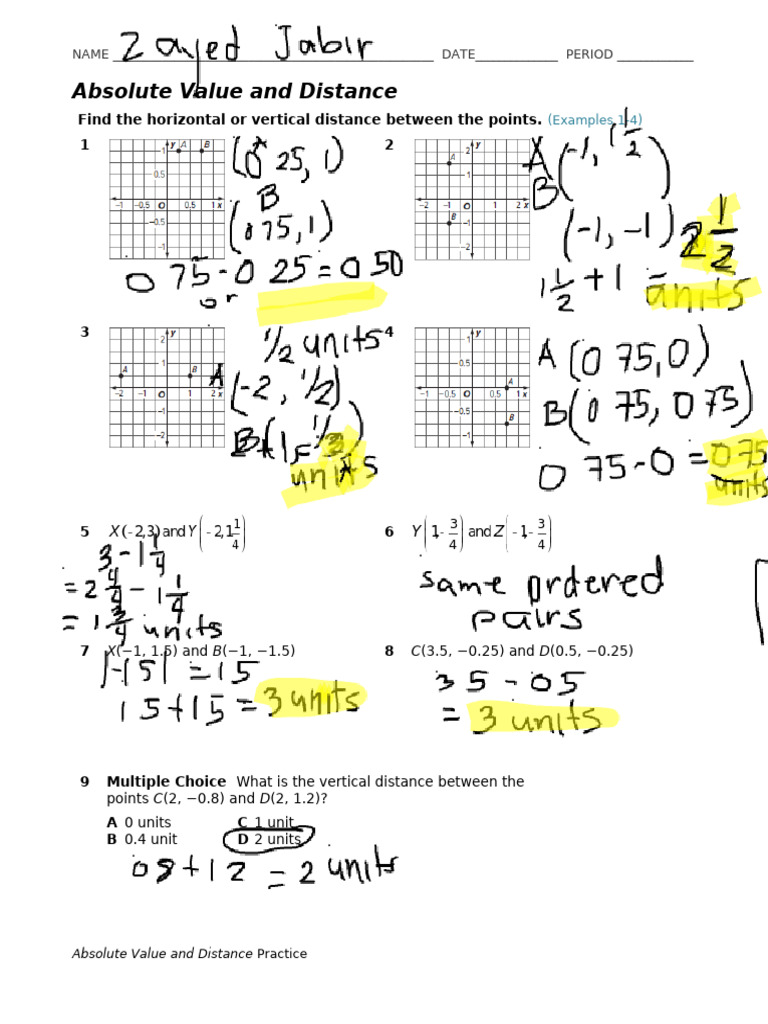 NAME Zayed Jabir DATE PERIOD
Absolute Value and Distance
Find the horizontal or vertical distance between the points. (Examples 1-4)
1
y A B
1
0.5
-1 -0.5 O 0.5 1 x
-0.5
-1
(0.25, 1)
B
(0.75, 1)
0.75-0.25=0.50
or
1/2 units
2
y
2
A
1
-2 -1 O 1 2 x
B -1
-2
A (-1, 1 1/2)
B
(-1, -1)
1 1/2 + 1 = 2 1/2
units
3
y
2
1
A B
-2 -1 O 1 2 x
-1
-2
A (-2, 1/2)
B (1, 1/2)
= 3
units
4
y
1
0.5
A
-1 -0.5 O 0.5 1 x
-0.5 B
-1
A (0.75, 0)
B (0.75, 0.75)
0.75-0 = 0.75
units
5 X(-2,3) and Y(-2,1 1/4)
3 - 1 1/4
= 2 4/4 - 1 1/4
= 1 3/4 units
6 Y(1,-3/4) and Z(-1,-3/4)
same ordered
pairs
7 X(−1, 1.5) and B(−1, −1.5)
|-1.5| = 1.5
1.5+1.5 = 3 units
8 C(3.5, −0.25) and D(0.5, −0.25)
3.5 - 0.5
= 3 units
9 Multiple Choice What is the vertical distance between the
points C(2, −0.8) and D(2, 1.2)?
A 0 units C 1 unit
B 0.4 unit D 2 units
0.8+1.2 = 2 units
Absolute Value and Distance Practice